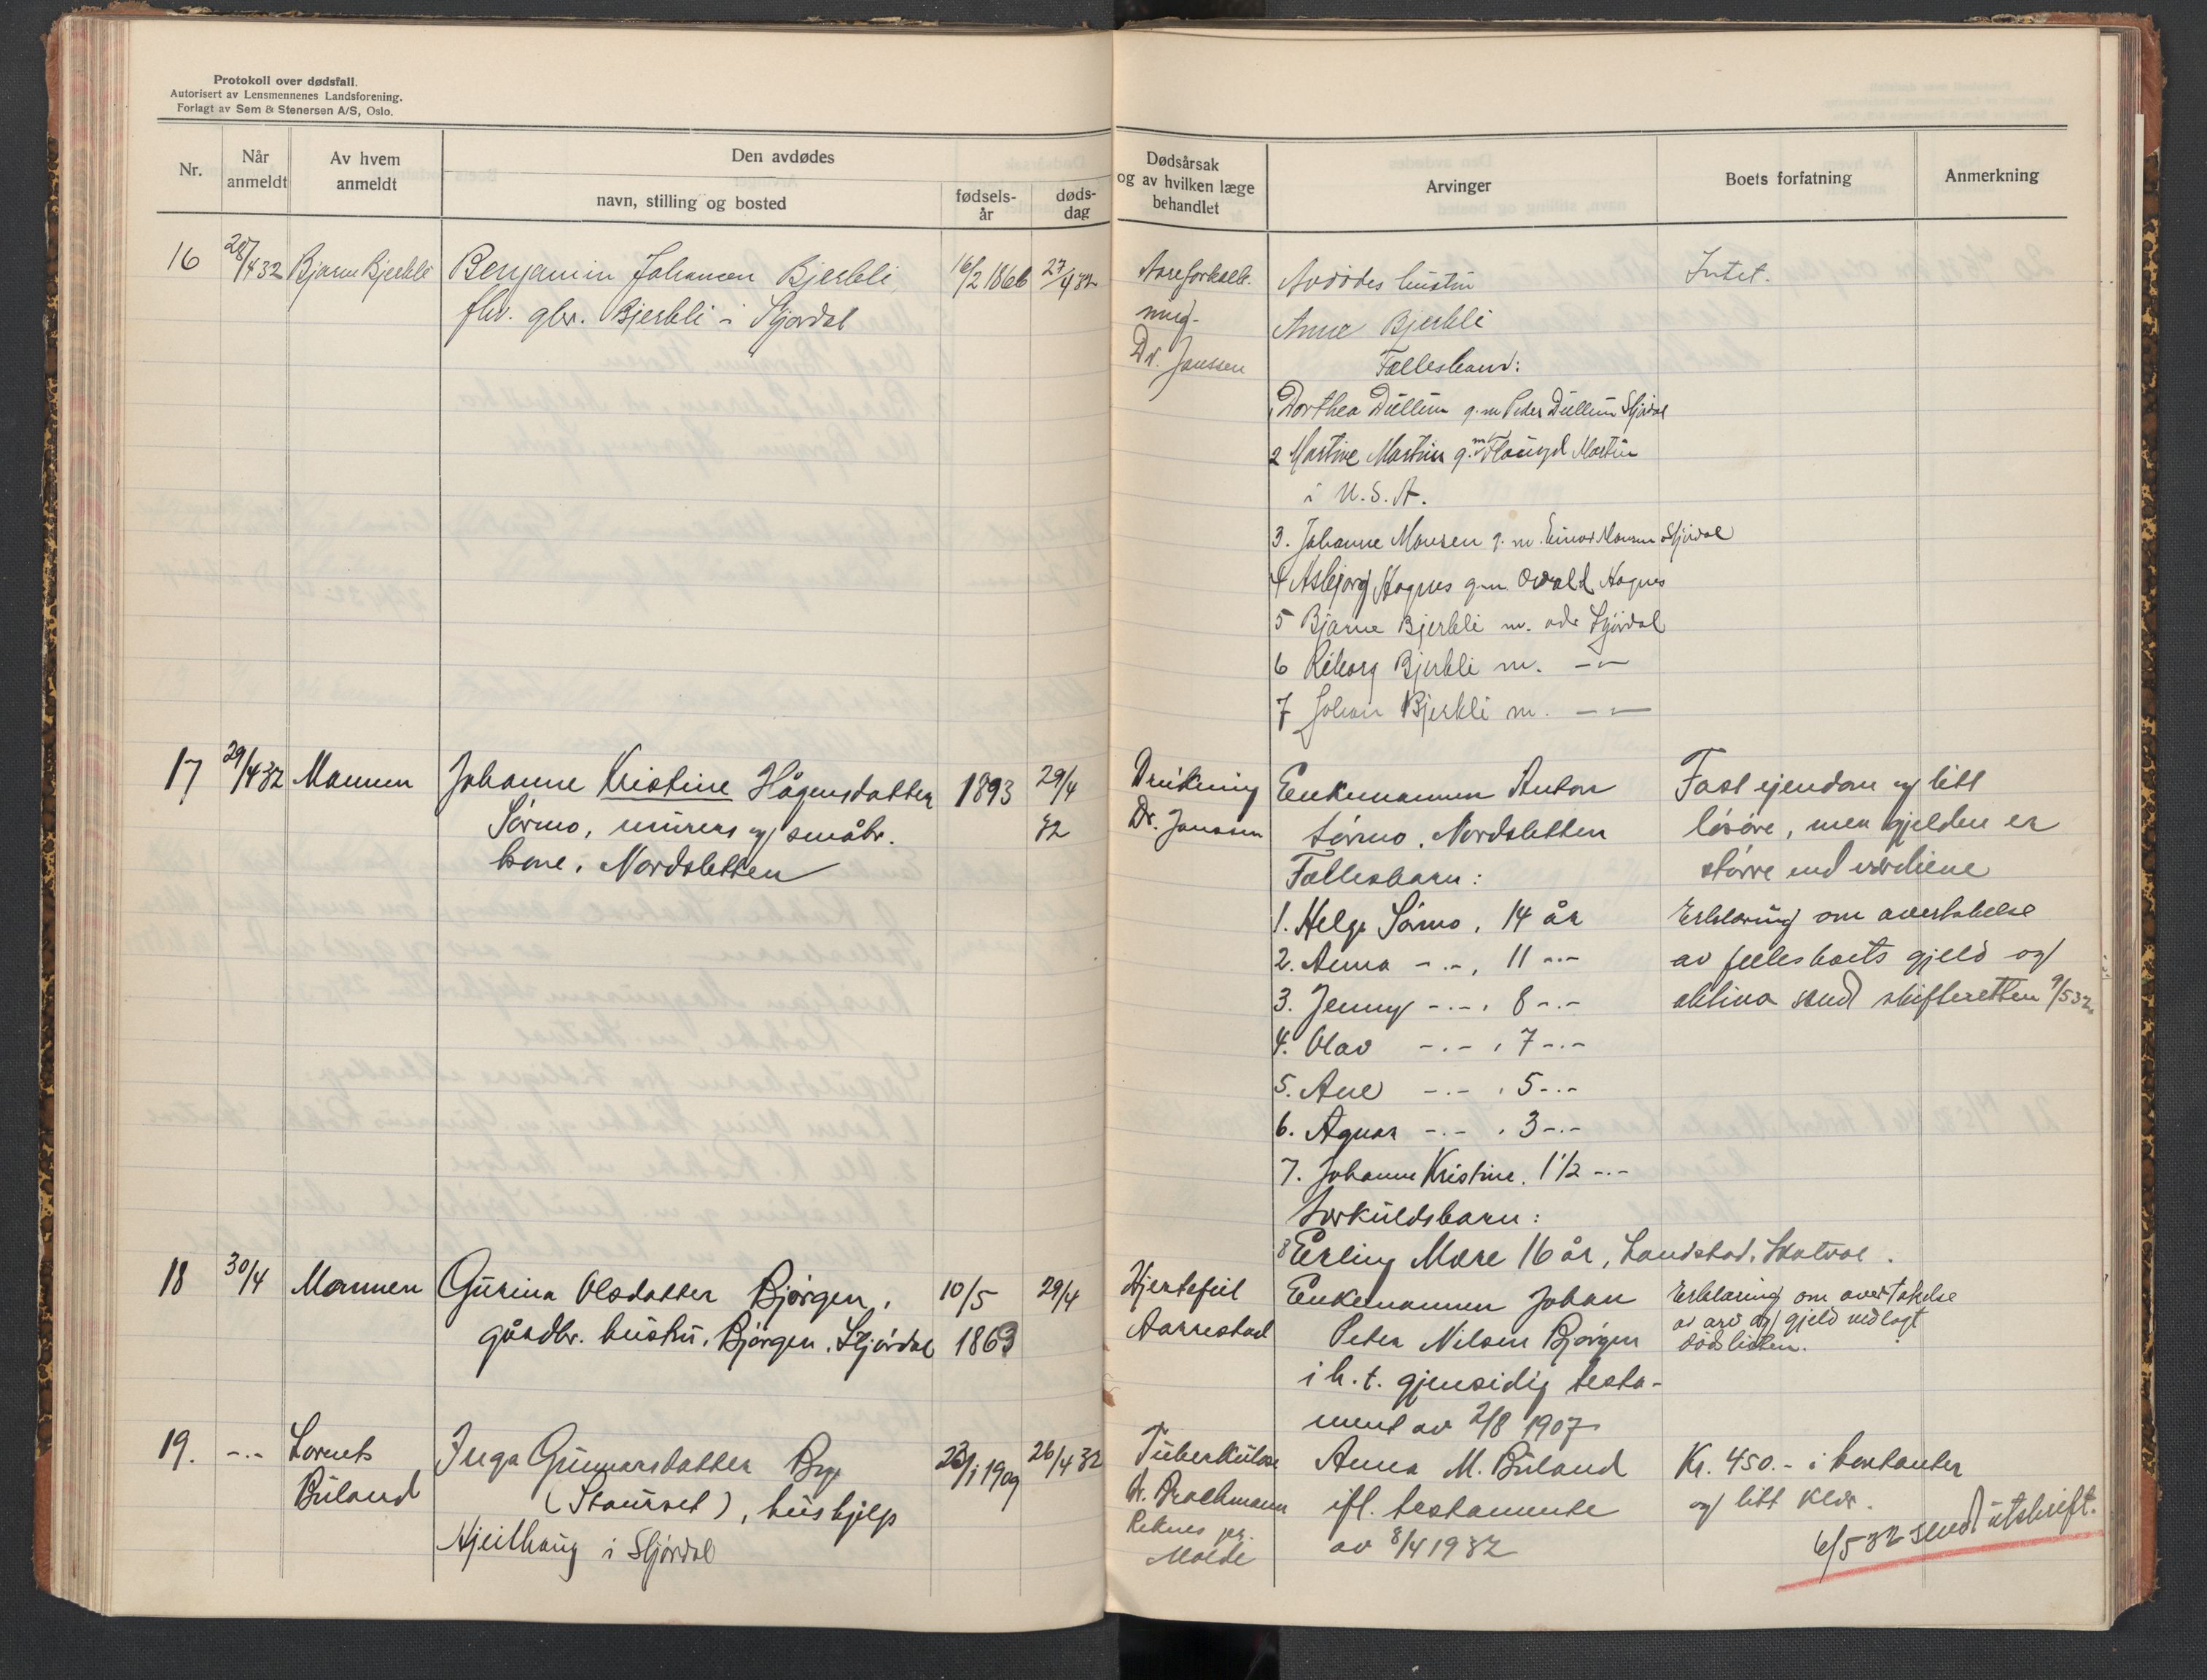 Protokoll over dødsfall.
Autorisert av Lensmennenes Landsforening.
Forlagt av Sem & Stenersen A/S, Oslo.
Nr.
Når anmeldt
Av hvem anmeldt
Den avdødes
navn, stilling og bosted
fødsels-
år
døds-
dag
Dødsårsak
og av hvilken læge
behandlet
Arvinger
Boets forfatning
Anmerkning
16 28/4 32 Bjarne Bjerkli Benjamin Johansen Bjerkli, 16/2 1866 27/4 32
fhv. gbr. Bjerkli i Stjørdal
Aareforkalk-
ning-
Dr. Janssen
Avdødes hustru
Anna Bjerkli
Fællesbarn:
1 Dorthea Dullum g.m. Peder Dullum Stjørdal
2 Martine Martin g.m. Martin
i U.S.A.
3. Johanne Monsen g.m. Einar Monsen Stjørdal
4 Asbjørg Hognes g.m. Hognes
5 Bjarne Bjerkli m. adr Stjørdal
6 Bjerkli m. -"-
7 Johan Bjerkli m. -"-
Intet.
17 29/4 32 Mannen Johanne Kristine Hågensdatter 1893 29/4
Sørmo, murers og småbr. 32
kone, Nordsletten
Drukning
Dr. Janssen
Enkemannen Anton
Sørmo, Nordsletten
Fællesbarn:
1. Helge Sørmo, 14 år
2. Anna -.-, 11 -.-
3. Jenny -.-, 8 -.-
4. Olav -.-, 7 -.-
5. Ane -.-, 5 -.-
6. Agnar -.-, 3 -.-
7. Johanne Kristine, 1 1/2 -.-
Særkuldsbarn:
8 Erling Mære 16 år, Landstad, Skatval.
Fast ejendom og litt
løsøre, men gjelden er
større end verdiene
Erklæring om overtakelse
av fellesboets gjeld og
aktiva send skifteretten 9/5 32
18 30/4 Mannen Gurina Olsdatter Bjørgen, 10/5 29/4
gårdbr. hustru, Bjørgen, Stjørdal 1863
Hjertefeil
Aarrestad
Enkemannen Johan
Peter Nilsen Bjørgen
i h. t. gjensidig testa-
ment av 2/8 1907
Erklæring om overtakelse
av arv og gjeld vedlagt
dødslisten.
19. -.- Lornts Inga Gunnarsdatter Bye 23/1 1909 26/4 32
Buland (Staurset), hushjelp
i Stjørdal
Tuberkulose
Dr. Drachmann
Reknes
Molde
Anna M. Buland
ifl. testamente
av 8/4 1932
Kr. 450.- i kontanter
og litt klær.
6/5 32 send utskrift.